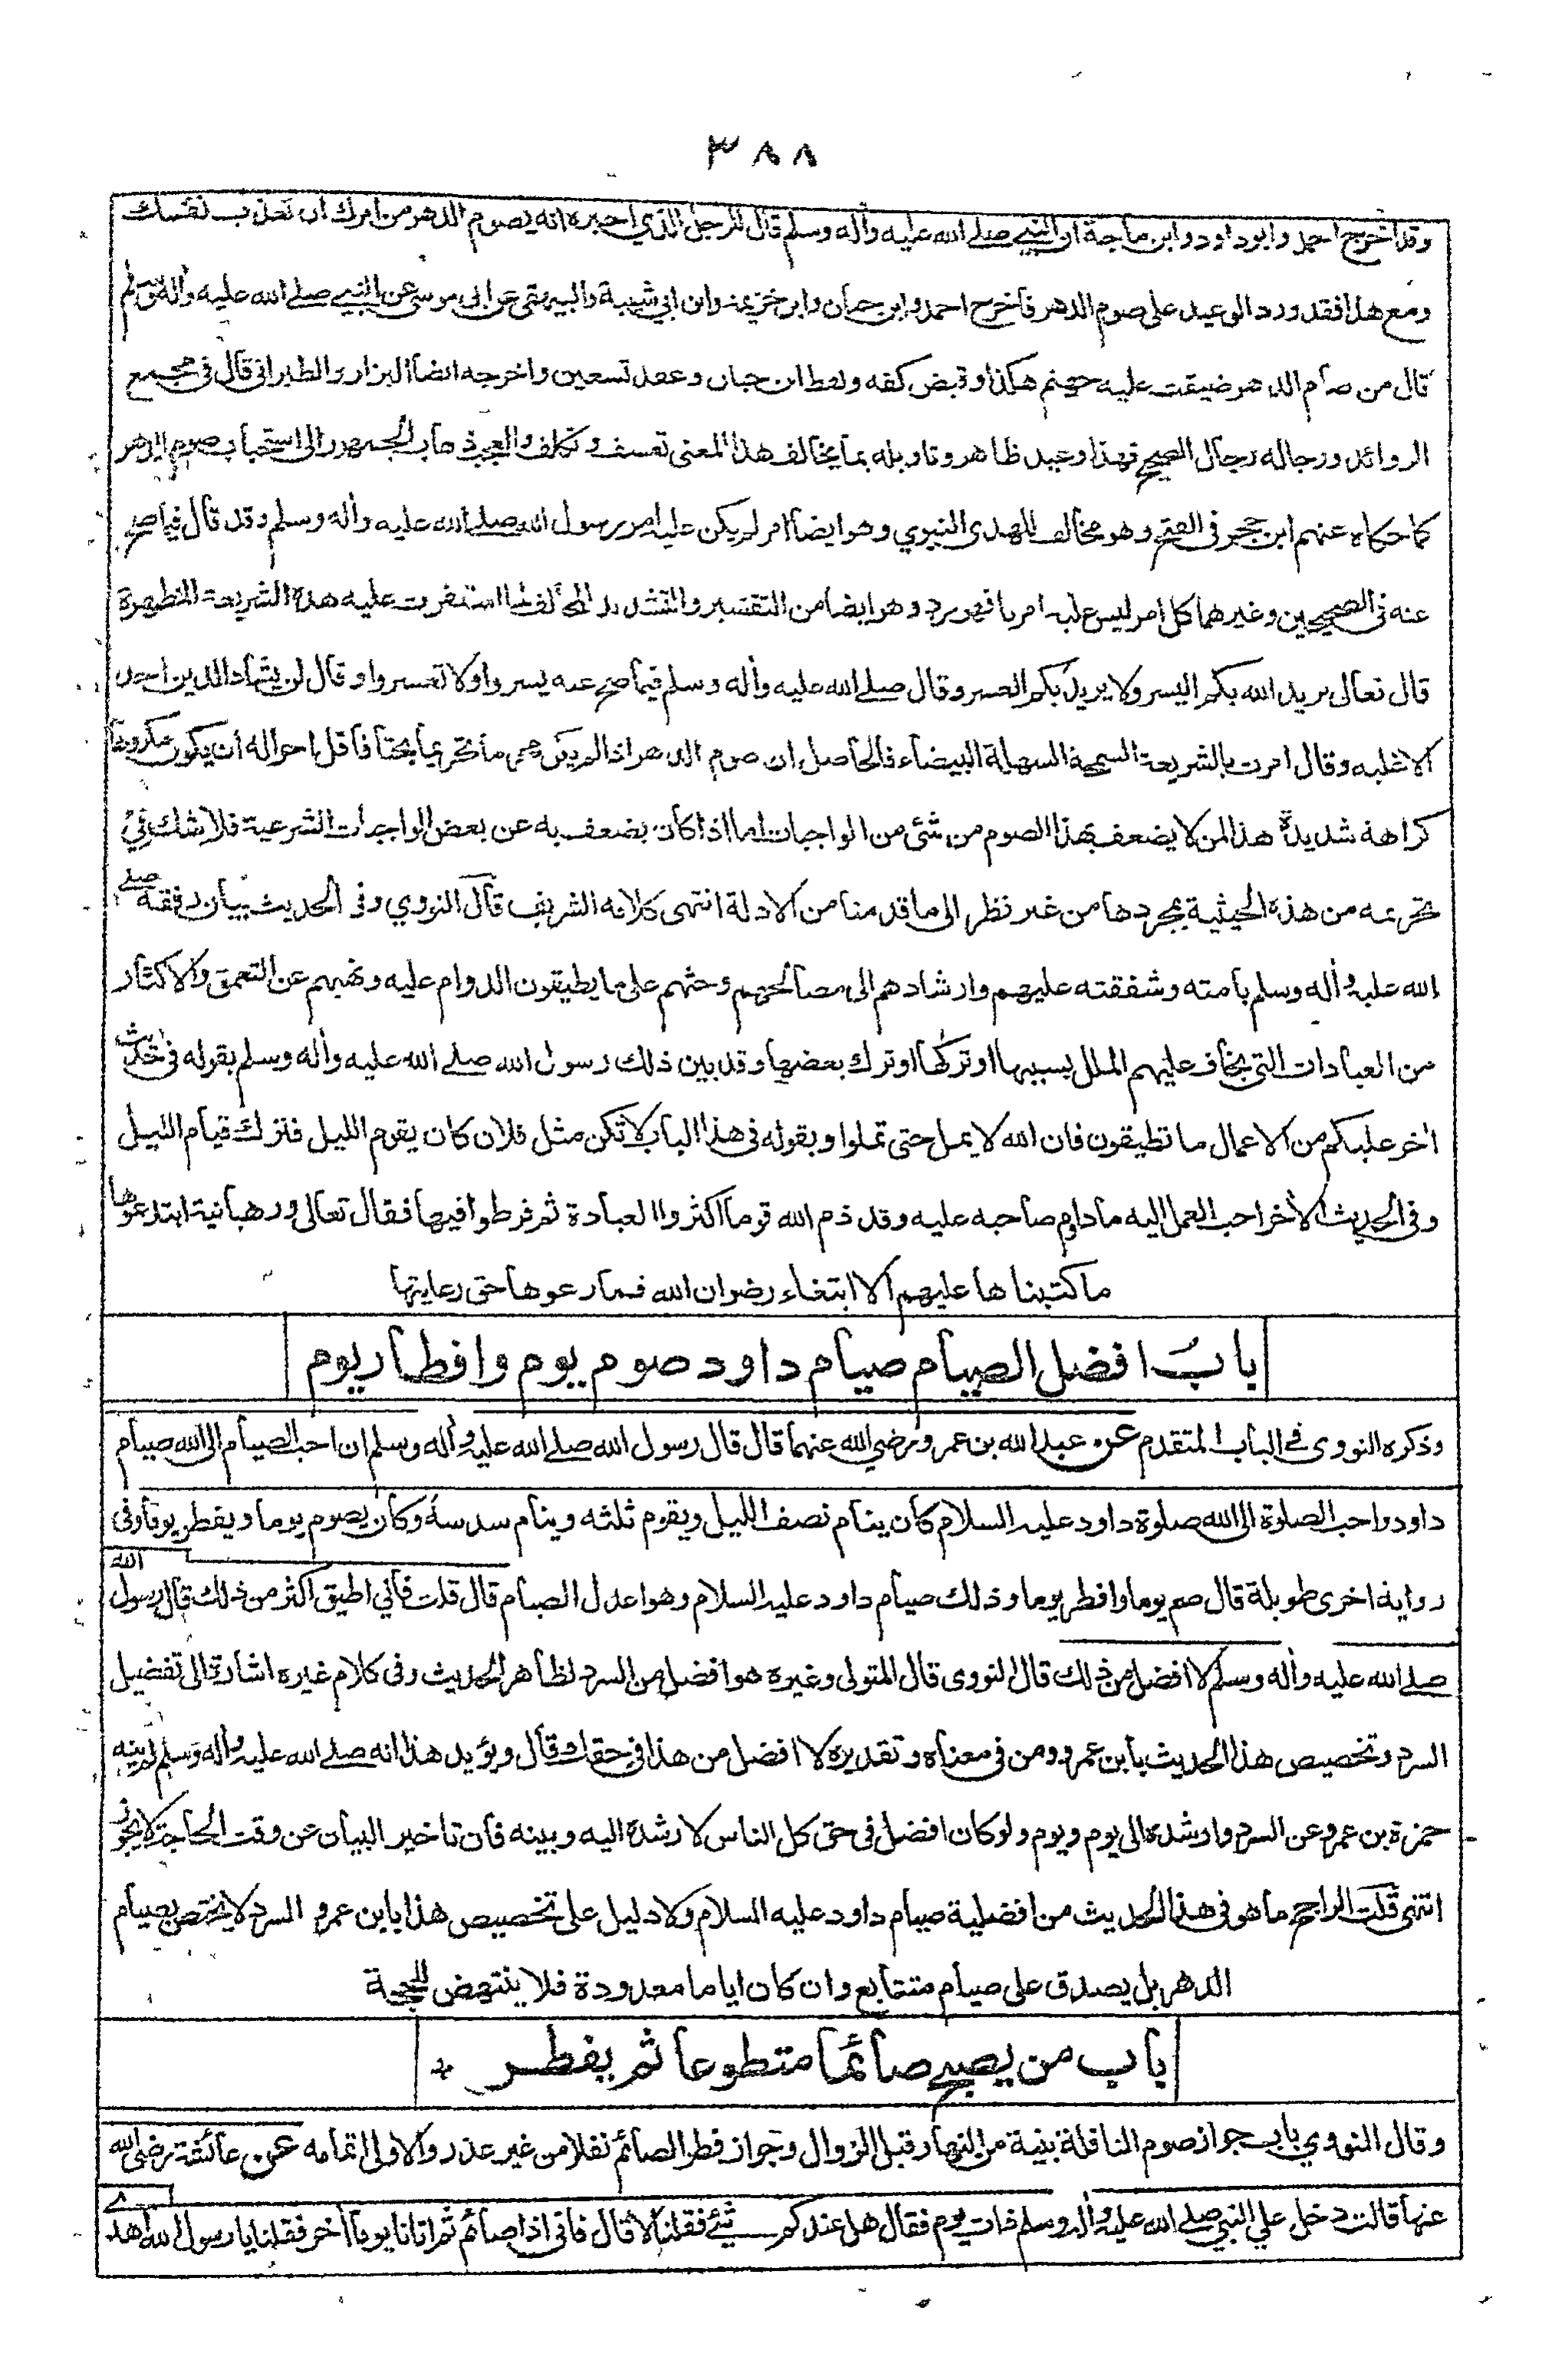 ٣٨٨
وقد اخرج احمد وابوداود وابن ماجة ان النبي صلى الله عليه وأله وسلم قال للرجل الذي اخبره انه يصوم الدهر من امرك ان تعذب نفسك
ومع هذا فقد ورد الوعيد على صوم الدهر فأخرج احمد وابن حبان وابن خزيمة وابن ابي شيبة والبيهقي عن ابى موسى عن النبي صلى الله عليه وأله وسلم
قال من صام الدهر ضيقت عليه جهنم هكذا وقبض كفه ولفظ ابن حبان وعقد تسعين واخرجه ايضا البزار والطبرانى قال فى مجمع
الزوائد ورجاله رجال الصحيح فهذا وعيد ظاهر وتاويله بما يخالف هذا المعنى تعسف وتكلف والعجب ذهاب الجمهور الى استحباب صوم الدهر
كما حكاه عنهم ابن حجر فى الفتح وهو مخالف للهدى النبوي وهو ايضا امر لم يكن عليه امر رسول الله صلى الله عليه وأله وسلم وقد قال فيما صح
عنه فى الصحيحين وغيرهما كل امر ليس عليه امرنا فهو رد وهو ايضا من التقشير والتشديد المخالف لما استقرت عليه هذه الشريعة المطهرة
قال تعالى يريد الله بكم اليسر ولا يريد بكم العسر وقال صلى الله عليه وأله وسلم فيما صح عنه يسروا ولا تعسروا وقال لن يشاد الدين احد
الا غلبه وقال امرت بالشريعة السمحة السهلة البيضاء فالحاصل ان صوم الدهر اذا لم يكن محرما تحريما بحتا فأقل احواله ان يكون مكروها
كراهة شديدة هذا لمن لا يضعف بهذا الصوم من شئ من الواجبات اما اذا كان يضعف به عن بعض الواجبات الشرعية فلا شك في
تحريمه من هذه الحيثية بمجردها من غير نظر الى ما قدمنا من الادلة انتهى كلامه الشريف قال النووي وفى الحديث بيان رفقه صلى
الله عليه وأله وسلم بامته وشفقته عليهم وارشادهم الى مصالحهم وحثهم على ما يطيقون الدوام عليه ونهيهم عن التعمق والاكثار
من العبادات التى يخاف عليهم الملل بسببها او تركها او ترك بعضها وقد بين ذلك رسول الله صلى الله عليه وأله وسلم بقوله فى حديث
أخر عليكم من الاعمال ما تطيقون فان الله لا يمل حتى تملوا وبقوله فى هذا الباب لا تكن مثل فلان كان يقوم الليل فترك قيام الليل
وفى الحديث الأخر احب العمل اليه ما داوم صاحبه عليه وقد ذم الله قوما اكثروا العبادة ثم فرطوا فيها فقال تعالى ورهبانية ابتدعوها
ما كتبناها عليهم الا ابتغاء رضوان الله فما رعوها حق رعايتها
باب افضل الصيام صيام داود صوم يوم وافطار يوم
وذكره النووى فى الباب المتقدم عن عبد الله بن عمرو رضي الله عنهما قال قال رسول الله صلى الله عليه وأله وسلم ان احب الصيام الى الله صيام
داود واحب الصلوة الى الله صلوة داود عليه السلام كان ينام نصف الليل ويقوم ثلثه وينام سدسه وكان يصوم يوما ويفطر يوما وفى
رواية اخرى طويلة قال صم يوما وافطر يوما وذلك صيام داود عليه السلام وهو اعدل الصيام قال قلت فأني اطيق اكثر من ذلك قال رسول الله
صلى الله عليه وأله وسلم لا افضل من ذلك قال النووى قال المتولى وغيره هو افضل من السرد لظاهر الحديث وفى كلام غيره اشارة الى تفضيل
السرد وتخصيص هذا الحديث بابن عمرو ومن فى معناه وتقديره لا افضل من هذا في حقك قال ويؤيد هذا انه صلى الله عليه وأله وسلم لم ينه
حمزة بن عمرو عن السرد وارشده الى يوم ويوم ولو كان افضل فى حق كل الناس لارشده اليه وبينه فأن تاخير البيان عن وقت الحاجة لا يجوز
انتهى قلت الراجح ما هو فى هذا الحديث من افضلية صيام داود عليه السلام ولا دليل على تخصيص هذا يا بن عمرو السرد لا يختص بصيام
الدهر بل يصدق على صيام متتابع وان كان اياما معدودة فلا ينتهض للحجة
باب من يصبح صائما متطوعا ثم يفطر
وقال النووي باب جواز صوم النافلة بنية من النهار قبل الزوال وجواز فطر الصائم نفلا من غير عذر والاولى اتمامه عن عائشة رضى الله
عنها قالت دخل علي النبي صلى الله عليه وأله وسلم ذات يوم فقال هل عندكم شئ فقلنا لا قال فانى اذا صائم ثم اتانا يوما أخر فقلنا يا رسول الله اهدي